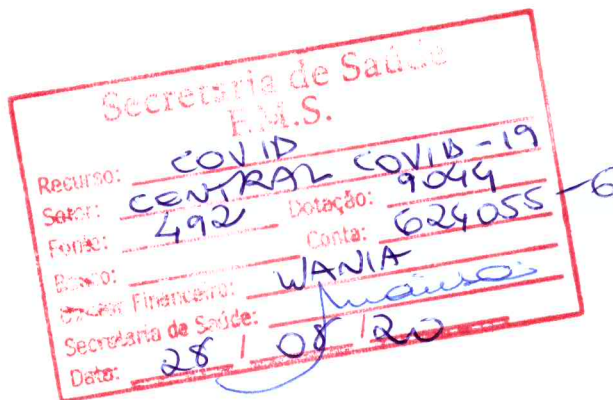 Secretaria de Saúde
F.M.S.
Recurso: COVID
Setor: CENTRAL COVID-19
Fonte: 492 Dotação: 9044
Banco: Conta: 624055-6
Financeiro: WANIA
Secretaria de Saúde:
Data: 28 / 08 / 20